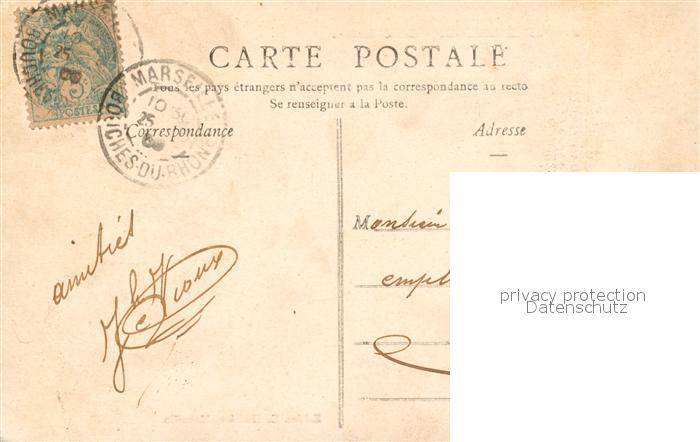 CARTE POSTALE
Tous les pays étrangers n'acceptent pas la correspondance au recto
Se renseigner a la Poste.
Correspondance
Adresse
MARSEILLE
10
25
BOUCHES-DU-RHONE
5c
POSTES
amitiés
Monsieur
empl
privacy protection
Datenschutz